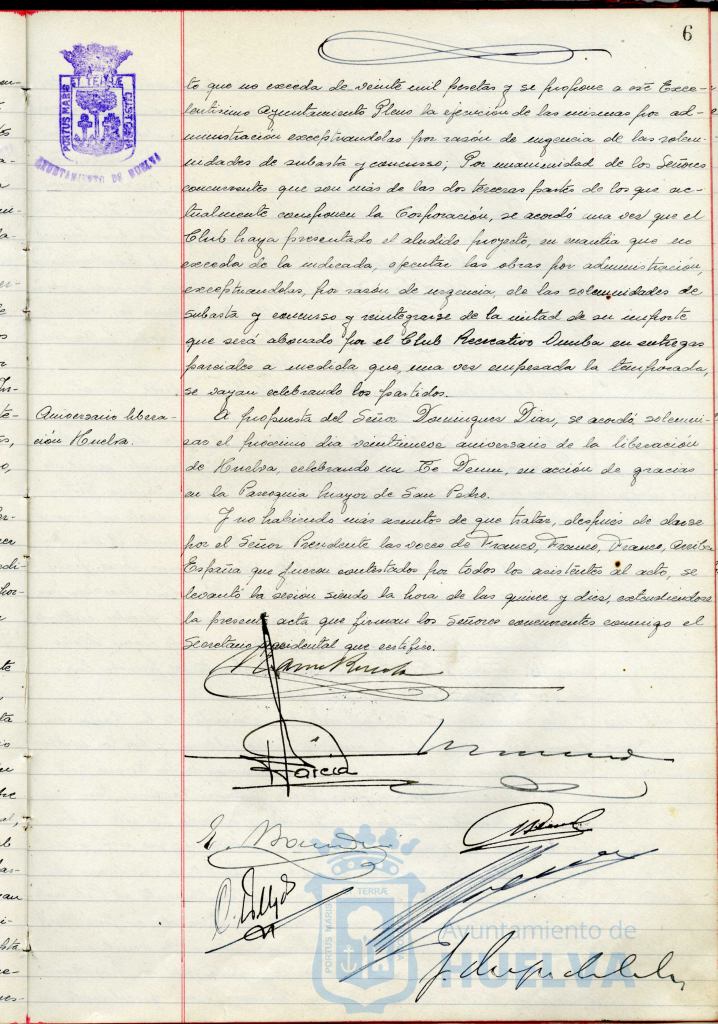 6
PORTUS MARIS ET TERRÆ CUSTODIA
AYUNTAMIENTO DE HUELVA
to que no exceda de veinte mil pesetas y se propone a este Exce-
lentísimo Ayuntamiento Pleno la ejecución de las mismas por ad-
ministración exceptuandolas por razón de urgencia de las solem-
nidades de subasta y concurso; Por unanimidad de los Señores
concurrentes que son más de las dos terceras partes de los que ac-
tualmente componen la Corporación, se acordó una vez que el
Club haya presentado el aludido proyecto, en cuantía que no
exceda de la indicada, ejecutar las obras por administración,
exceptuandolas, por razón de urgencia, de las solemnidades de
subasta y concurso y reintegrarse de la mitad de su importe
que será abonado por el Club Recreativo Onuba en entregas
parciales a medida que, una vez empezada la temporada,
se vayan celebrando los partidos.
Aniversario libera-
ción Huelva.
A propuesta del Señor Dominguez Diaz, se acordó solemni-
zar el próximo dia veintinueve aniversario de la liberación
de Huelva, celebrando un Te Deum, en acción de gracias
en la Parroquia Mayor de San Pedro.
Y no habiendo más asuntos de que tratar, después de darse
por el Señor Presidente las voces de Franco, Franco, Franco, Arriba
España que fueron contestados por todos los asistentes al acto, se
levantó la sesión siendo la hora de las quince y diez, extendiendose
la presente acta que firman los Señores concurrentes conmigo el
Secretario accidental que certifico.
García
TERRÆ
PORTUS MARIS
Ayuntamiento de
HUELVA